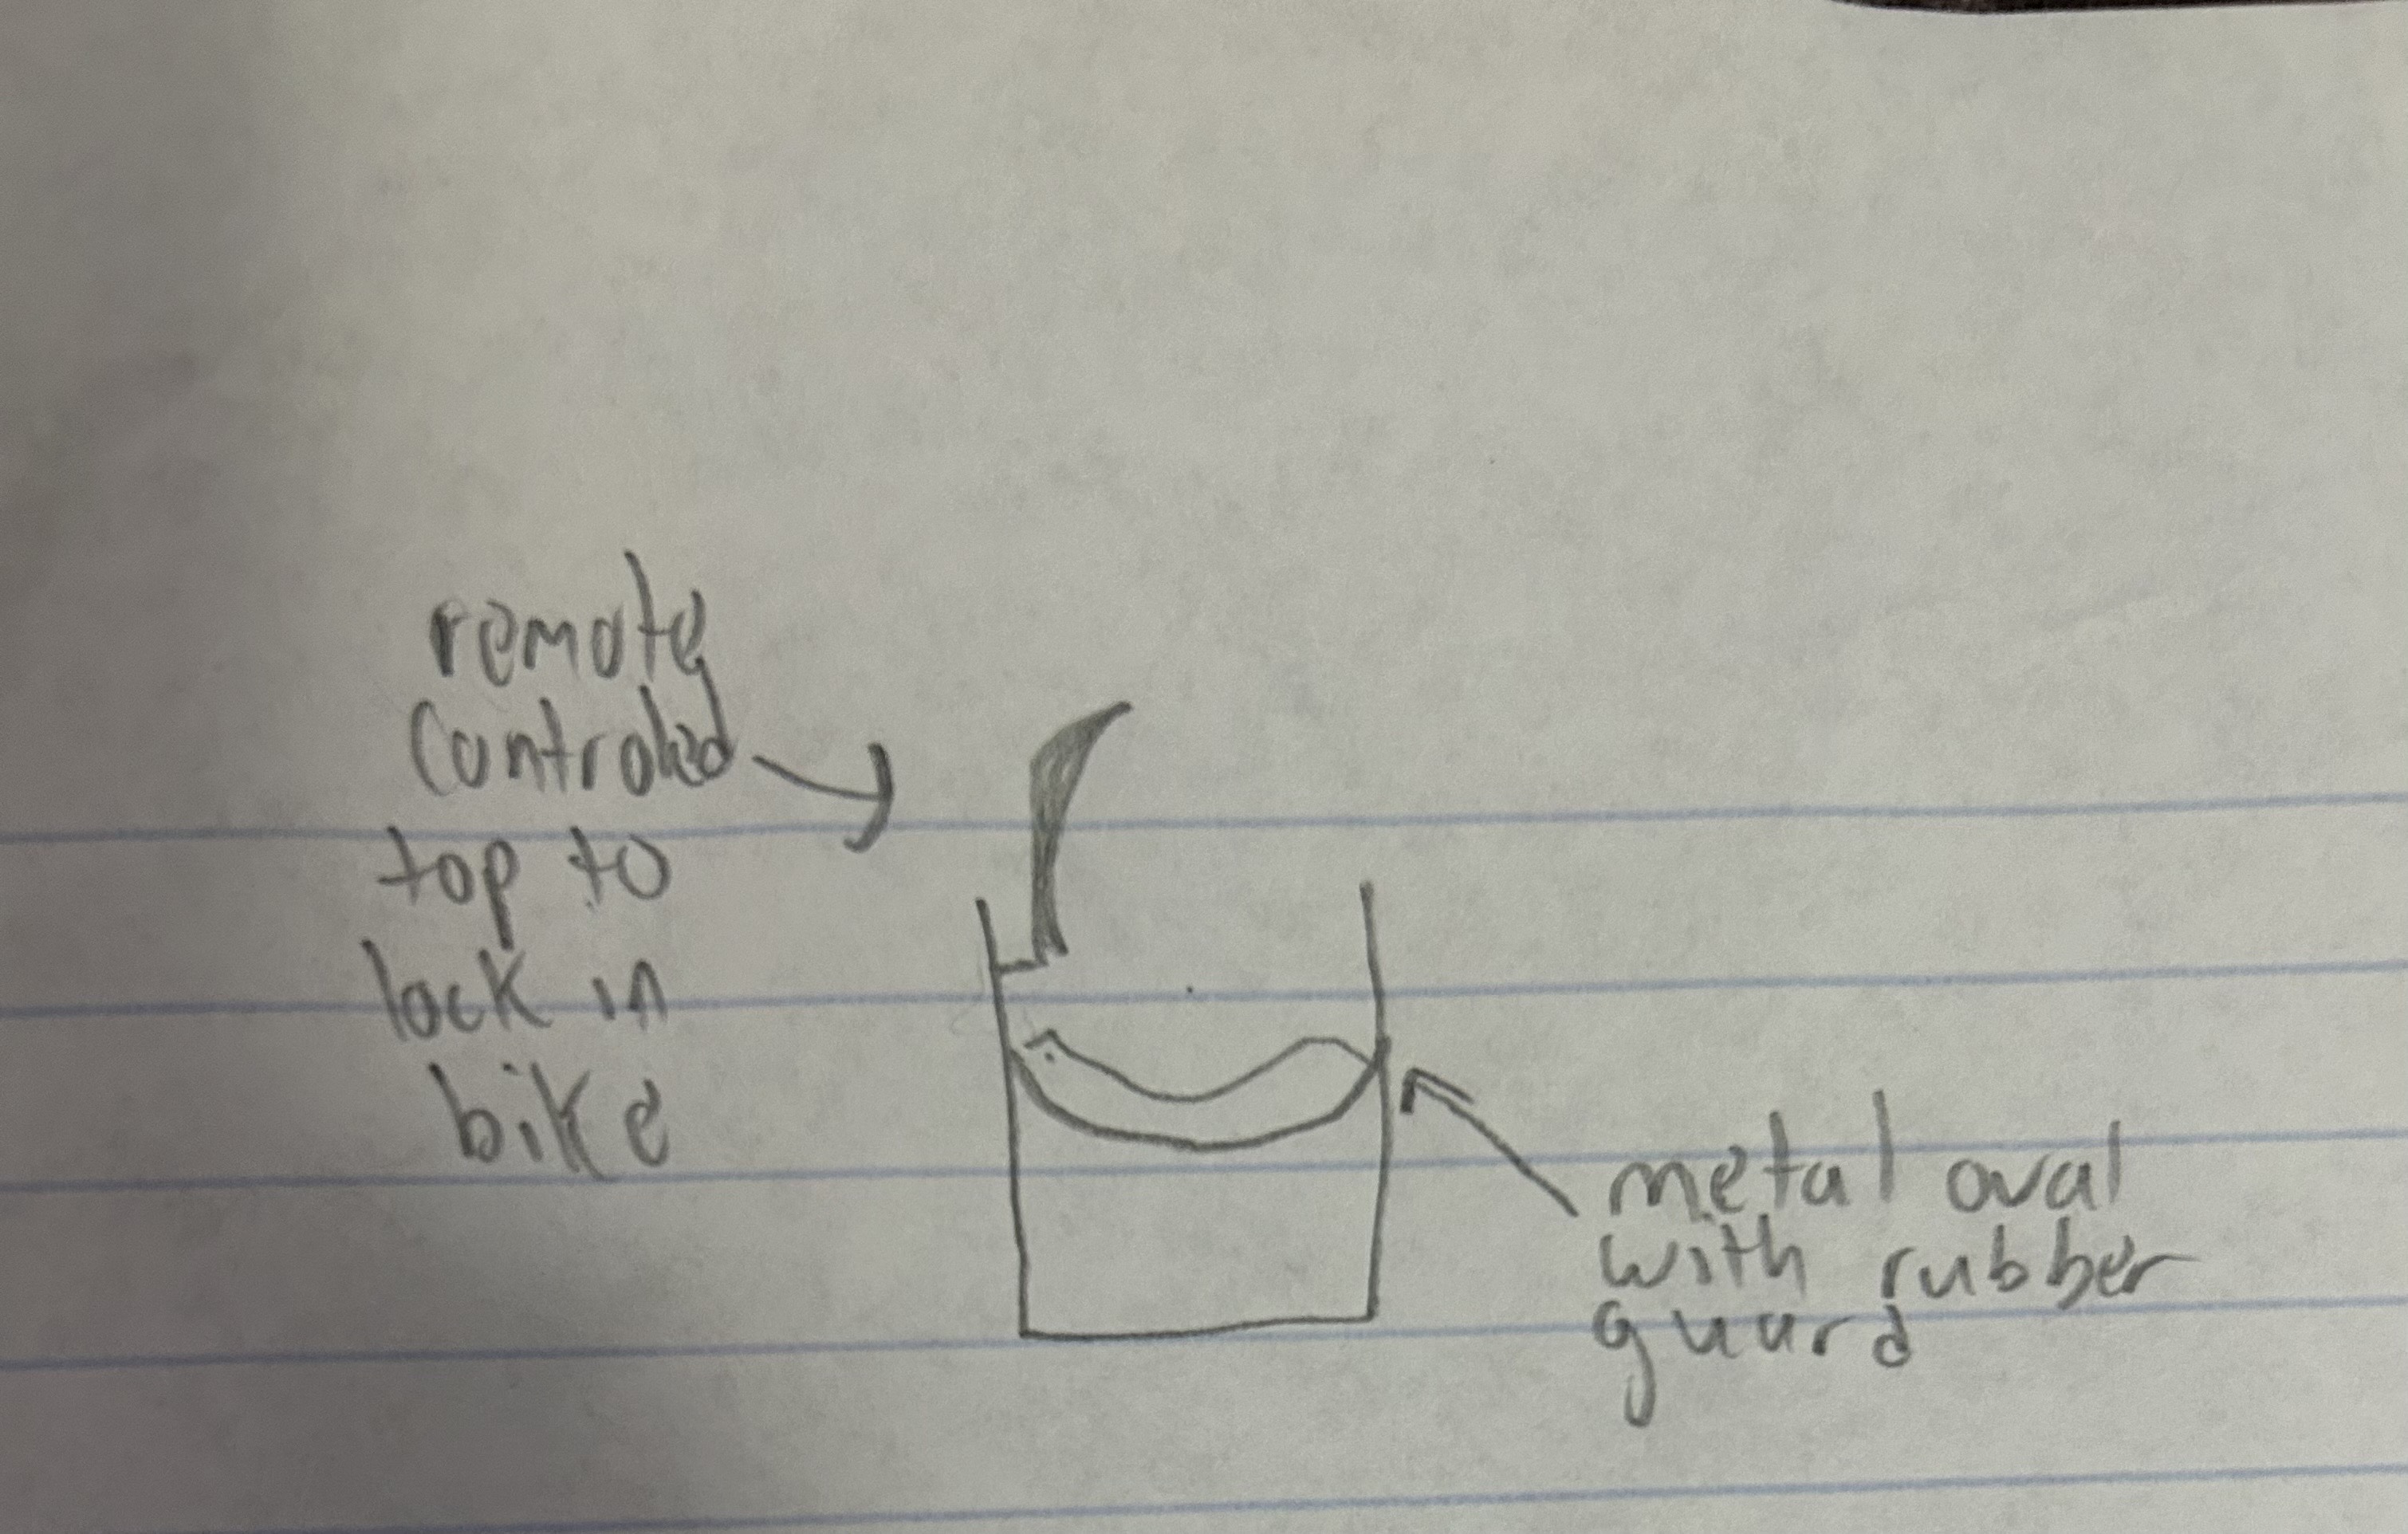 remote
controled
top to
lock in
bike
metal oval
with rubber
guard